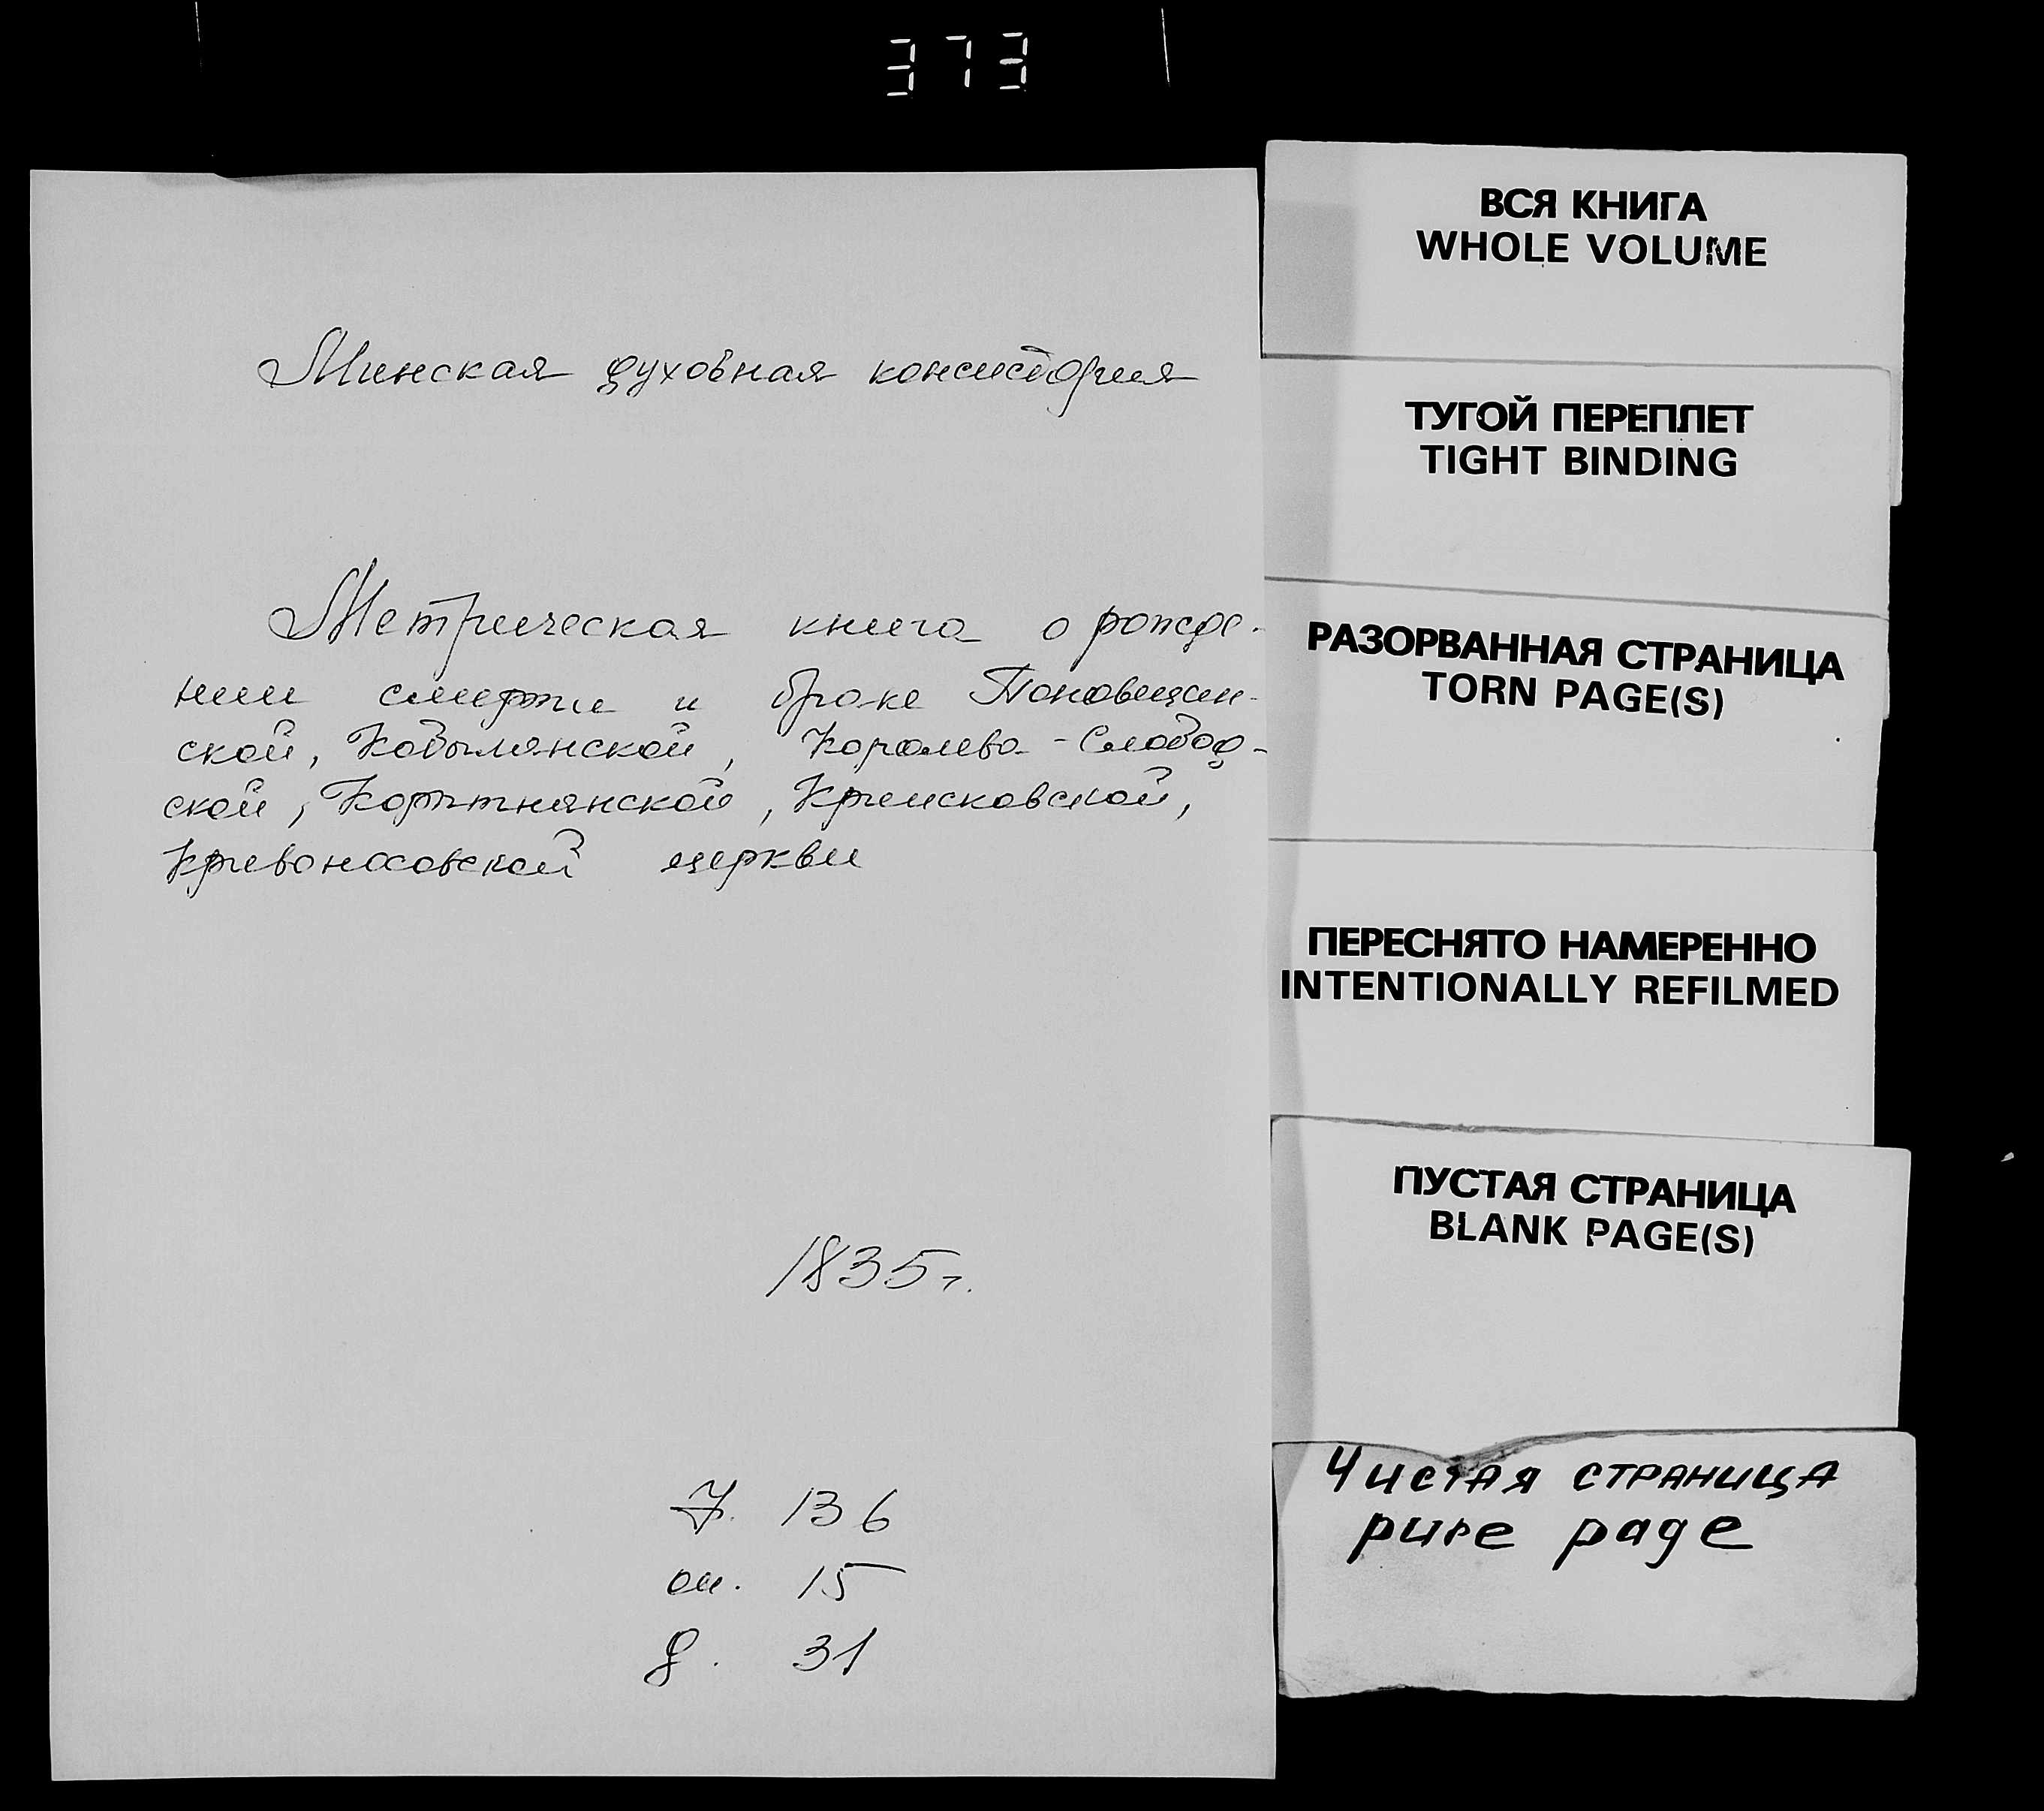 373
Минская духовная консистория
Метрическая книга о рожде-
нии смерти и браке Поповщин-
ской, Кобылянской, Королево-Слобод-
ской, Корытнянской, Крысковской,
Кривоносовской церкви
1835 г.
Ф. 136
оп. 15
д. 31
ВСЯ КНИГА
WHOLE VOLUME
ТУГОЙ ПЕРЕПЛЕТ
TIGHT BINDING
РАЗОРВАННАЯ СТРАНИЦА
TORN PAGE(S)
ПЕРЕСНЯТО НАМЕРЕННО
INTENTIONALLY REFILMED
ПУСТАЯ СТРАНИЦА
BLANK PAGE(S)
Чистая страница
pure page